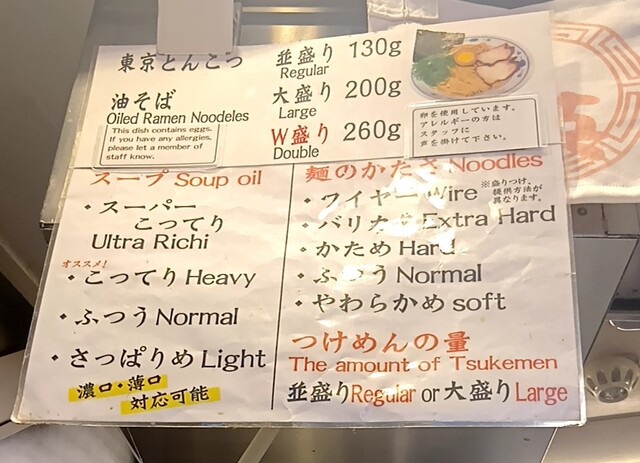 東京とんこつ
油そば
Oiled Ramen Noodeles
This dish contains eggs.
If you have any allergies,
please let a member of
staff know.
並盛り 130g
Regular
大盛り 200g
Large
W盛り 260g
Double
卵を使用しています。
アレルギーの方は
スタッフに
声を掛けて下さい。
スープ Soup oil
・スーパー
こってり
Ultra Richi
オススメ!
・こってり Heavy
・ふつう Normal
・さっぱりめ Light
濃口・薄口
対応可能
麺のかたさ Noodles
・ワイヤー Wire
※盛りつけ、
提供方法が
異なります。
・バリカタ Extra Hard
・かため Hard
・ふつう Normal
・やわらかめ soft
つけめんの量
The amount of Tsukemen
並盛り Regular or 大盛り Large